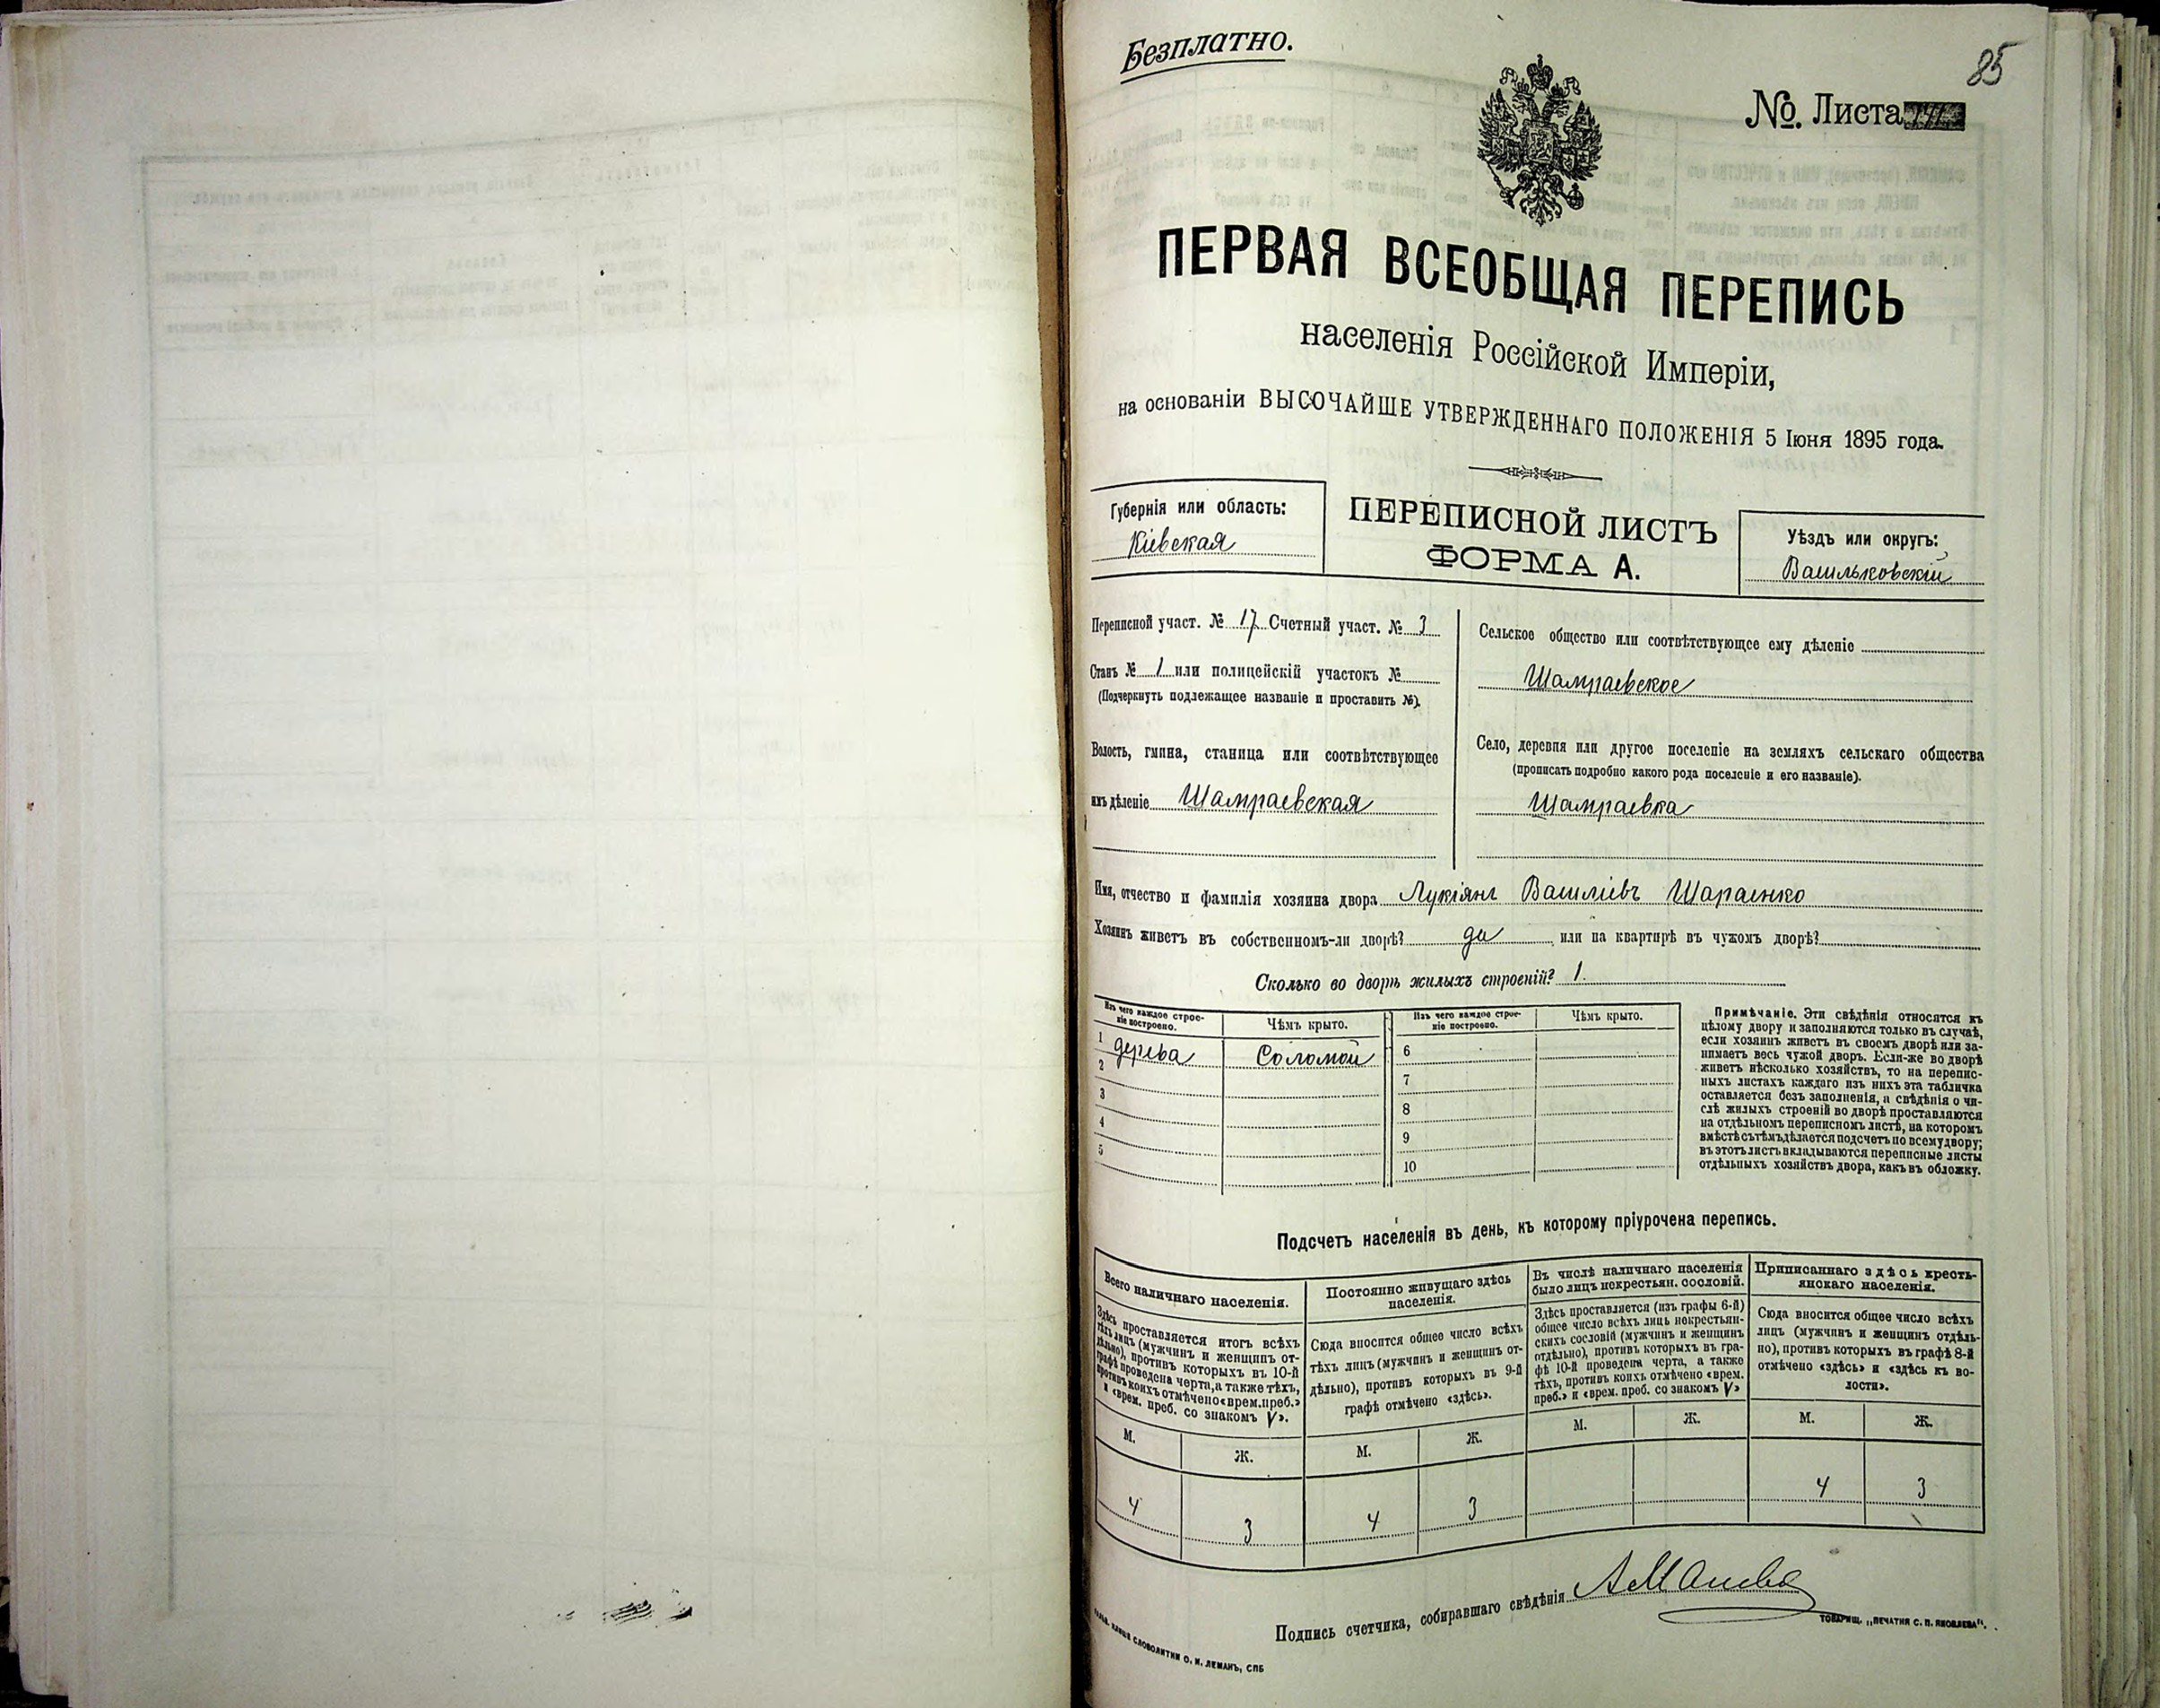 Безплатно.
85
№. Листа
ПЕРВАЯ ВСЕОБЩАЯ ПЕРЕПИСЬ
населенія Россійской Имперіи,
на основаніи ВЫСОЧАЙШЕ УТВЕРЖДЕННАГО ПОЛОЖЕНІЯ 5 Іюня 1895 года.
Губернія или область:
Кіевская
ПЕРЕПИСНОЙ ЛИСТЪ
ФОРМА А.
Уѣздъ или округъ:
Васильковскій
Переписной участ. № 17 Счетный участ. № 3
Станъ № 1 или полицейскій участокъ №
(Подчеркнуть подлежащее названіе и проставить №).
Волость, гмина, станица или соотвѣтствующее
имъ дѣленіе Шамраевская
Сельское общество или соотвѣтствующее ему дѣленіе
Шамраевское
Село, деревня или другое поселеніе на земляхъ сельскаго общества
(прописать подробно какого рода поселеніе и его названіе).
Шамраевка
Имя, отчество и фамилія хозяина двора Лукіянъ Василіевъ
Хозяинъ живетъ въ собственномъ-ли дворѣ? да или на квартирѣ въ чужомъ дворѣ?
Сколько во дворѣ жилыхъ строеній? 1.
Изъ чего каждое строе-
ніе построено.
Чѣмъ крыто.
Изъ чего каждое строе-
ніе построено.
Чѣмъ крыто.
1 дерева Соломой
2
3
4
5
6
7
8
9
10
Примѣчаніе. Эти свѣдѣнія относятся къ
цѣлому двору и заполняются только въ случаѣ,
если хозяинъ живетъ въ своемъ дворѣ или за-
нимаетъ весь чужой дворъ. Если-же во дворѣ
живетъ нѣсколько хозяйствъ, то на перепис-
ныхъ листахъ каждаго изъ нихъ эта табличка
оставляется безъ заполненія, а свѣдѣнія о чи-
слѣ жилыхъ строеній во дворѣ проставляются
на отдѣльномъ переписномъ листѣ, на которомъ
вмѣстѣ съ тѣмъ дѣлается подсчетъ по всему двору;
въ этотъ листъ вкладываются переписные листы
отдѣльныхъ хозяйствъ двора, какъ въ обложку.
Подсчетъ населенія въ день, къ которому пріурочена перепись.
Всего наличнаго населенія.
Здѣсь проставляется итогъ всѣхъ
тѣхъ лицъ (мужчинъ и женщинъ от-
дѣльно), противъ которыхъ въ 10-й
графѣ проведена черта, а также тѣхъ,
противъ коихъ отмѣчено «врем. преб.»
и «врем. преб. со знакомъ V».
М. Ж.
4 3
Постоянно живущаго здѣсь
населенія.
Сюда вносится общее число всѣхъ
тѣхъ лицъ (мужчинъ и женщинъ от-
дѣльно), противъ которыхъ въ 9-й
графѣ отмѣчено «здѣсь».
М. Ж.
4 3
Въ числѣ наличнаго населенія
было лицъ некрестьян. сословій.
Здѣсь проставляется (изъ графы 6-й)
общее число всѣхъ лицъ некрестьян-
скихъ сословій (мужчинъ и женщинъ
отдѣльно), противъ которыхъ въ гра-
фѣ 10-й проведена черта, а также
тѣхъ, противъ коихъ отмѣчено «врем.
преб.» и «врем. преб. со знакомъ V»
М. Ж.
Приписаннаго здѣсь кресть-
янскаго населенія.
Сюда вносится общее число всѣхъ
лицъ (мужчинъ и женщинъ отдѣль-
но), противъ которыхъ въ графѣ 8-й
отмѣчено «здѣсь» и «здѣсь къ во-
лости».
М. Ж.
4 3
Подпись счетчика, собиравшаго свѣдѣнія
СЛОВОЛИТНИ О. И. ЛЕМАНЪ, СПБ
ТОВАРИЩ. „ПЕЧАТНЯ С. П. ЯКОВЛЕВА“.